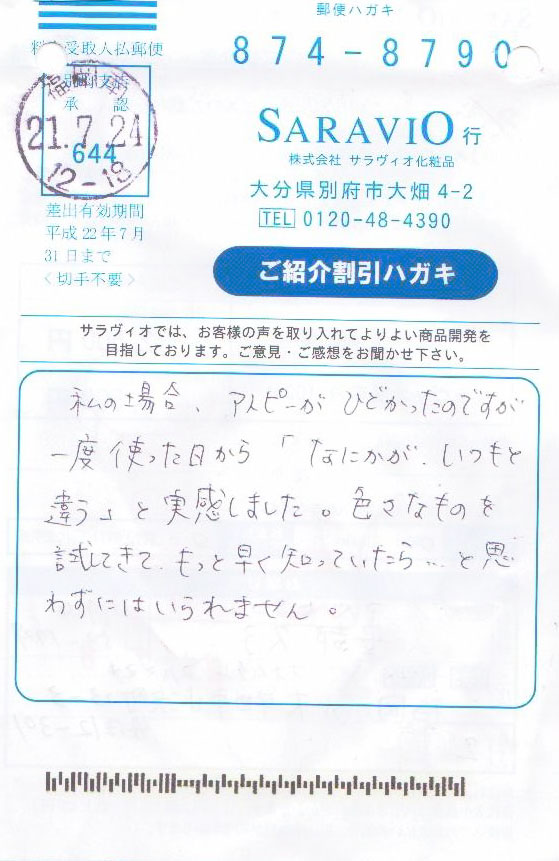 郵便ハガキ
料金受取人払郵便
874-8790
承認
21.7.24
644
12-18
SARAVIO 行
株式会社 サラヴィオ化粧品
大分県別府市大畑 4-2
TEL 0120-48-4390
差出有効期間
平成22年7月
31日まで
〈切手不要〉
ご紹介割引ハガキ
サラヴィオでは、お客様の声を取り入れてよりよい商品開発を
目指しております。ご意見・ご感想をお聞かせ下さい。
私の場合、アトピーが ひどかったのですが
一度 使った日から「なにかが、いつもと
違う」と 実感しました。色さなものを
試してきて、もっと早く知っていたら…と思
わずにはいられません。